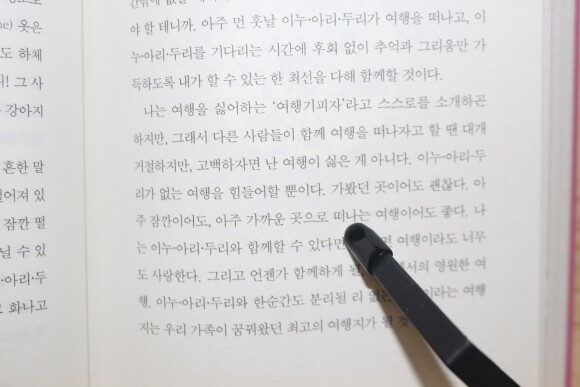 간밖에 없을
야 할 테니까. 아주 먼 훗날 이누·아리·두리가 여행을 떠나고, 이
누·아리·두리를 기다리는 시간에 후회 없이 추억과 그리움만 가
득하도록 내가 할 수 있는 한 최선을 다해 함께할 것이다.
나는 여행을 싫어하는 ‘여행기피자’라고 스스로를 소개하곤
하지만, 그래서 다른 사람들이 함께 여행을 떠나자고 할 땐 대개
거절하지만, 고백하자면 난 여행이 싫은 게 아니다. 이누·아리·두
리가 없는 여행을 힘들어할 뿐이다. 가봤던 곳이어도 괜찮다. 아
주 잠깐이어도, 아주 가까운 곳으로 떠나는 여행이어도 좋다. 나
는 이누·아리·두리와 함께할 수 있다면 여행이라도 너무
도 사랑한다. 그리고 언젠가 함께하게 될 영원한 여
행. 이누·아리·두리와 한순간도 분리될 리 없는 이라는 여행
지는 우리 가족이 꿈꿔왔던 최고의 여행지가 될
옷은
도 하체
! 그 사
강아지
흐한 말
어져 있
잠깐 떨
닐 수 있
리·두
화나고